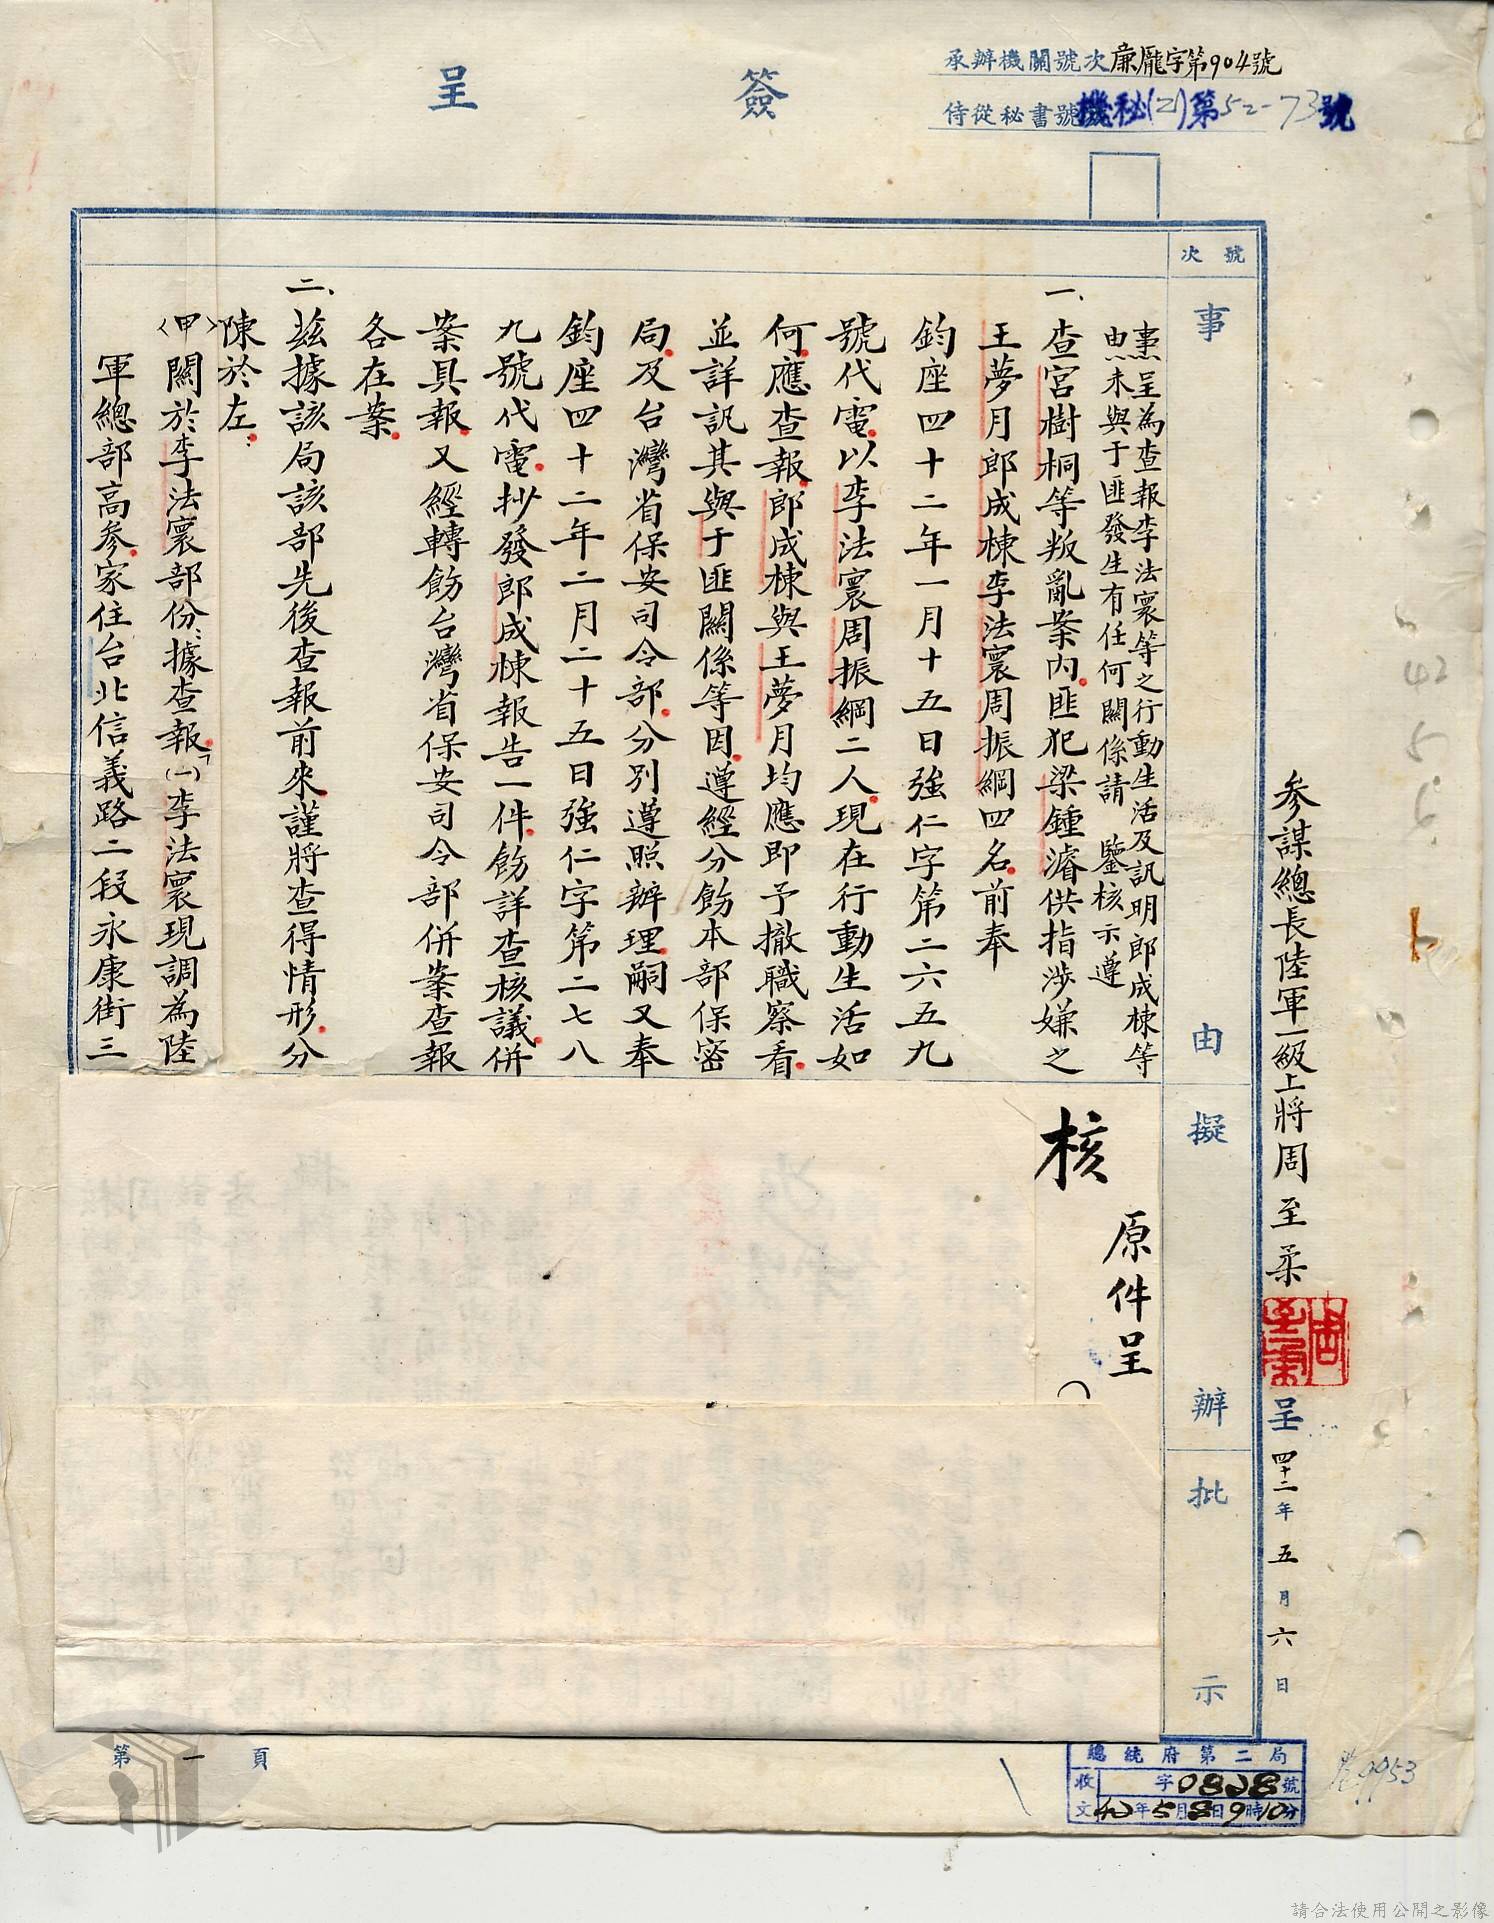 簽呈
承辦機關號次康龐字第904號
侍從秘書號機秘(2)第52-73號
號次
事由
擬辦
批示
參謀總長陸軍一級上將周至柔呈四十二年五月六日
事由：呈為查報李法寰等之行動生活及訊明郎成棟等
未與于匪發生有任何關係請鑒核示遵
一、查宮樹桐等叛亂案內匪犯梁鍾濬供指涉嫌之
王夢月郎成棟李法寰周振綱四名前奉
鈞座四十二年一月十五日強仁字第二六五九
號代電以李法寰周振綱二人現在行動生活如
何應查報郎成棟與王夢月均應即予撤職察看
並詳訊其與于匪關係等因遵經分飭本部保密
局及台灣省保安司令部分別遵照辦理嗣又奉
鈞座四十二年二月二十五日強仁字第二七八
九號代電抄發郎成棟報告一件飭詳查核議併
案具報又經轉飭台灣省保安司令部併案查報
各在案
二、茲據該局該部先後查報前來謹將查得情形分
陳於左：
〈甲〉關於李法寰部份：據查報「(一)李法寰現調為陸
軍總部高參家住台北信義路二段永康街三
核
原件呈
第一頁
總統府第二局
收文 字0828號
42年5月8日9時10分
9953
42
5
6
請合法使用公開之影像